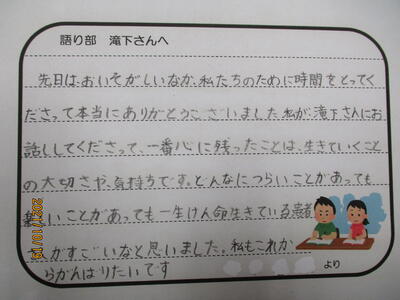 語り部 滝下さんへ
先日は、おいそがしいなか、私たちのために時間をとってく
ださって本当にありがとうございました。私が、滝下さんにお
話ししてくださって、一番心に残ったことは、生きていくこと
の大切さや、気持ちです。どんなにつらいことがあっても
しいことがあっても一生けん命生きている患者
さんがすごいなと思いました。私もこれか
らがんばりたいです
より
2021/10/19